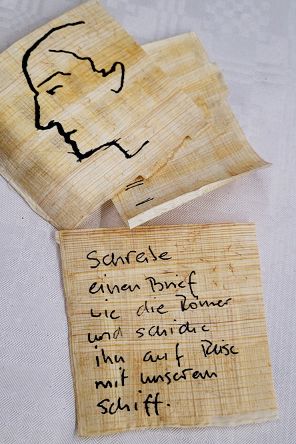 Schreibe
einen Brief
wie die Römer
und schicke
ihn auf Reise
mit unserem
Schiff.